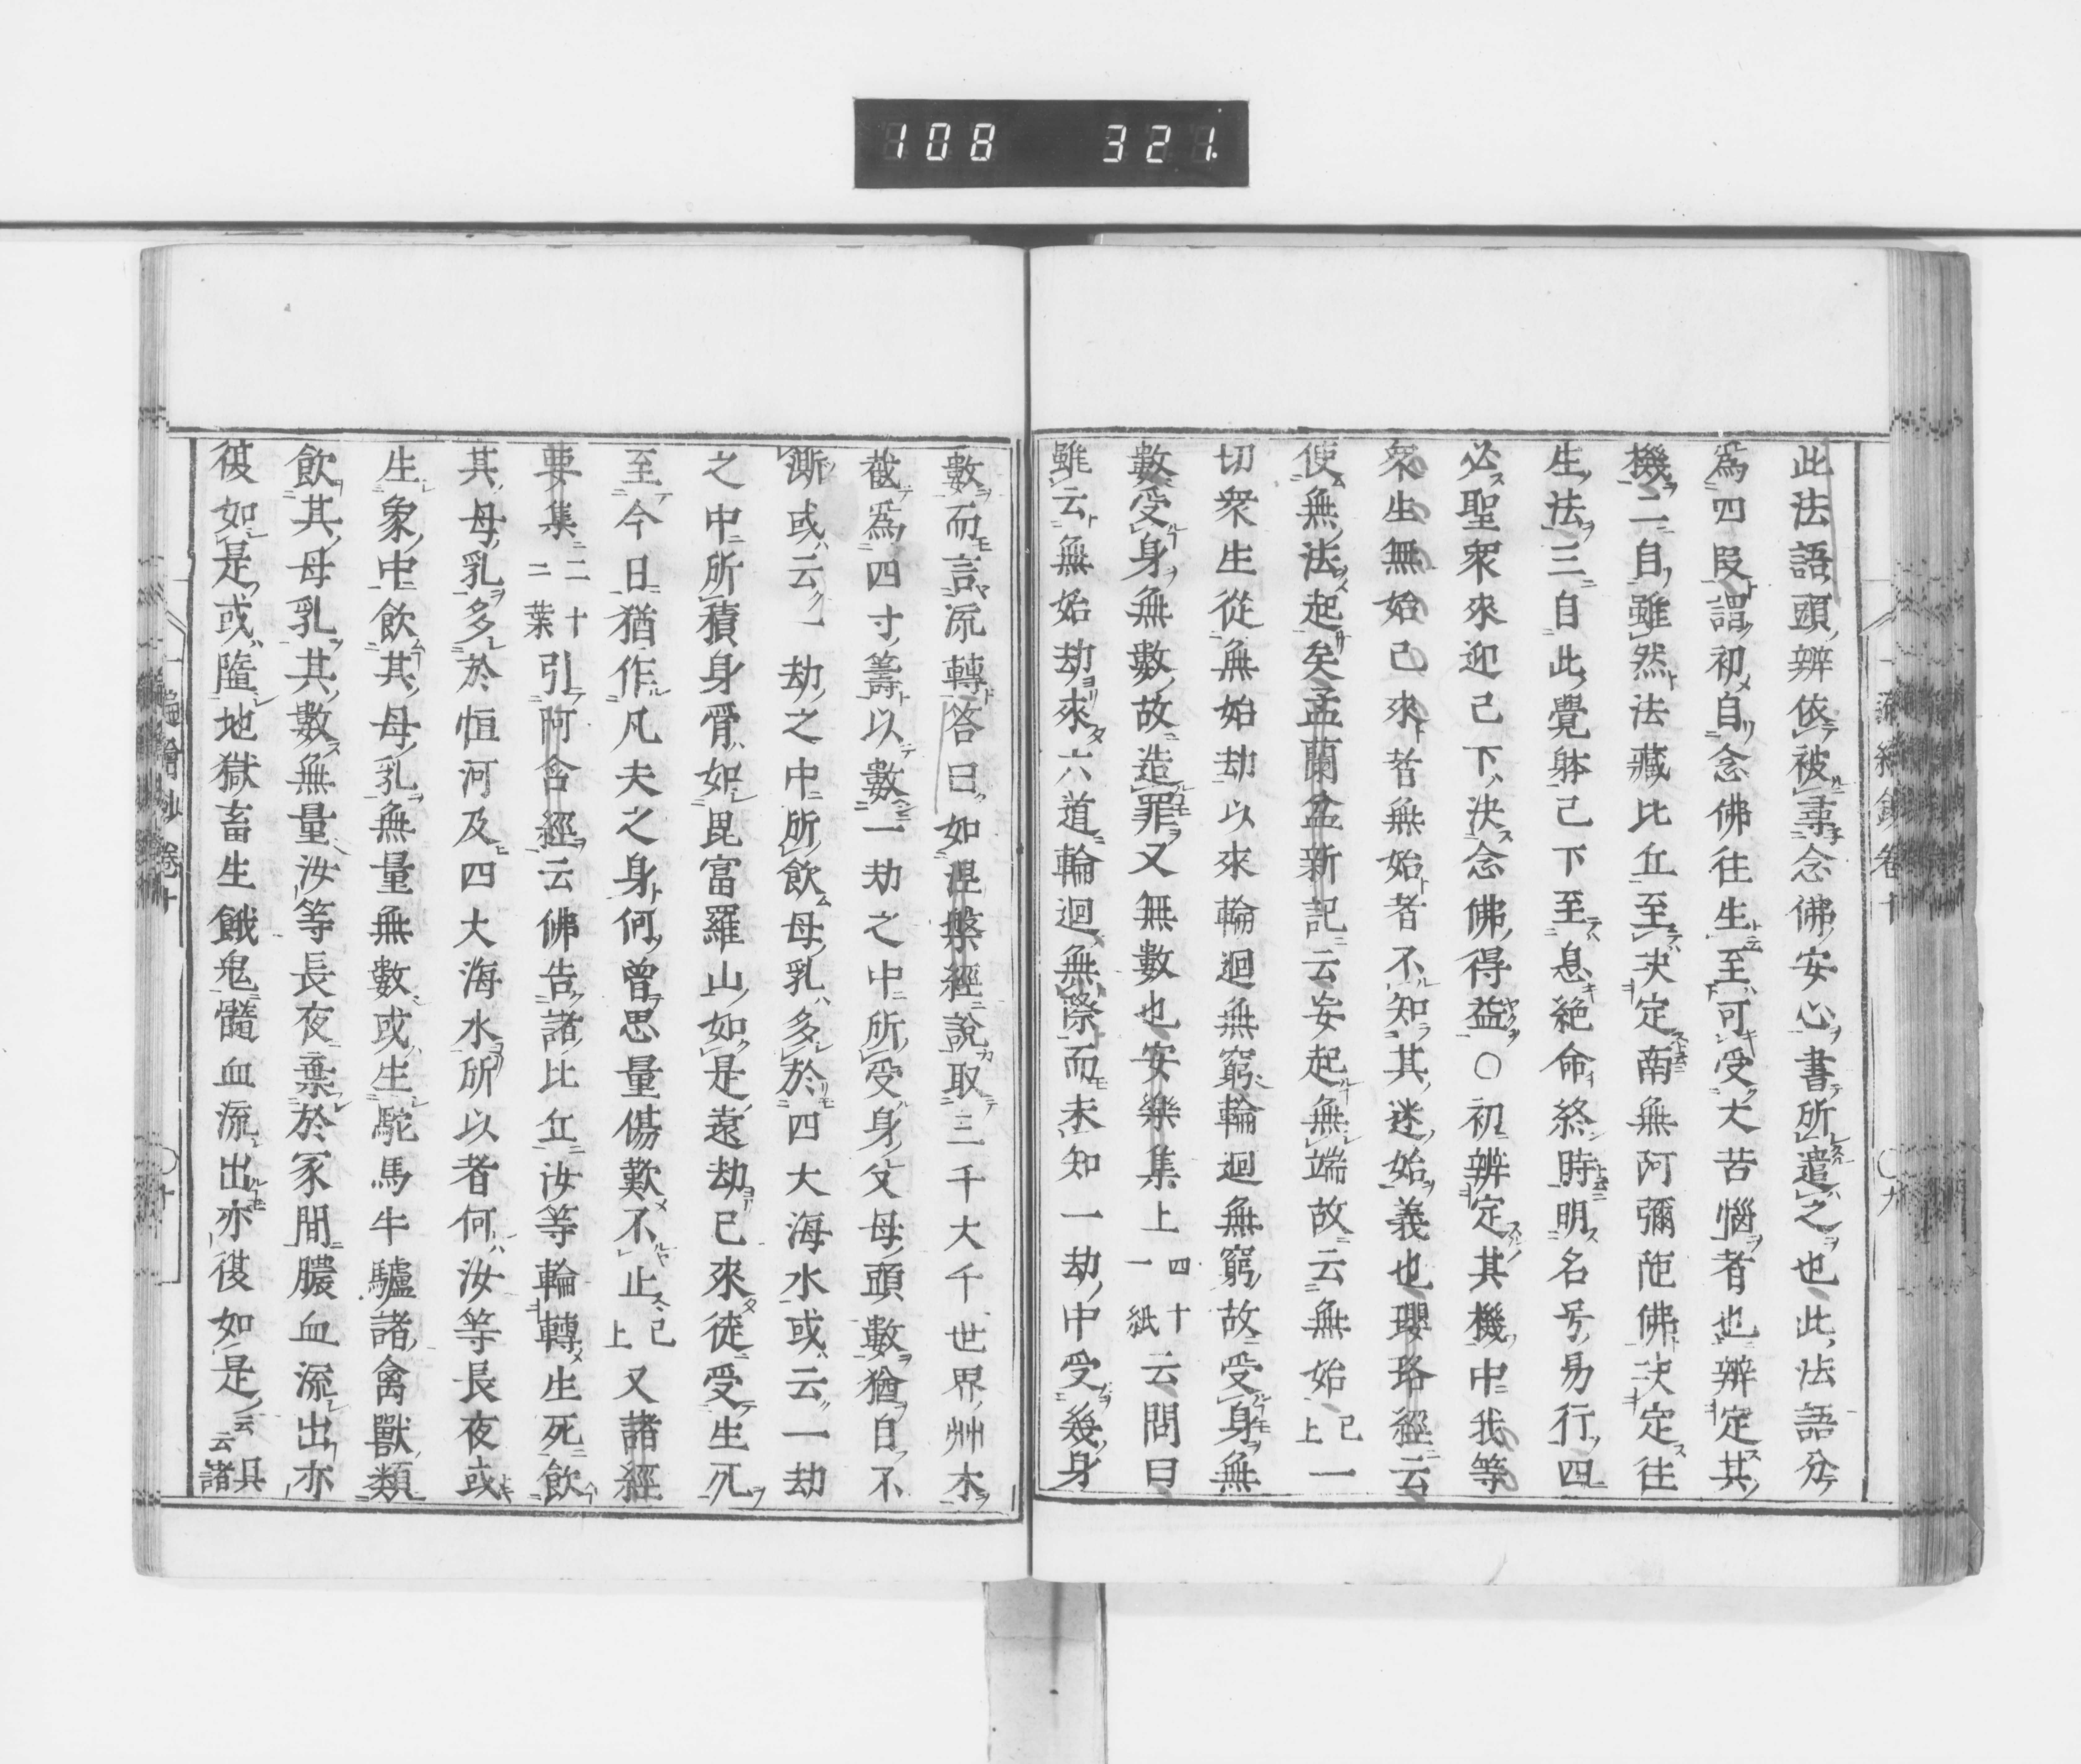 108 321
此法語頭辨依被尋念佛安心書所遣之也此法語分
爲四段謂初自念佛往生至可受大苦惱者也辨定其
機二自雖然法藏比丘至決定南無阿彌陀佛決定往
生法三自此覺躰已下至息絶命終時明名号易行四
必聖衆來迎已下決念佛得益○初辨定其機中我等
衆生無始已來者無始者不知其迷始義也瓔珞經云
使無法起矣盂蘭盆新記云妄起無端故云無始已上一
切衆生從無始劫以來輪迴無窮輪迴無窮故受身無
數受身無數故造罪又無數也安樂集上四十一紙云問曰
雖云無始劫來六道輪迴無際而未知一劫中受幾身
數而言流轉答曰如涅槃經說取三千大千世界艸木
截爲四寸籌以數一劫之中所受身父母頭數猶自不
澌或云一劫之中所飲母乳多於四大海水或云一劫
之中所積身骨如毘富羅山如是遠劫已來徒受生死
至今日猶作凡夫之身何曾思量傷歎不止已上又諸經
要集二十二葉引阿含經云佛告諸比丘汝等輪轉生死飲
其母乳多於恒河及四大海水所以者何汝等長夜或
生象中飲其母乳無量無數或生駝馬牛驢諸禽獸類
飲其母乳其數無量汝等長夜棄於冢間膿血流出亦
復如是或墮地獄畜生餓鬼髓血流出亦復如是云云具諸
繪鈔卷十 ○九
繪鈔卷十 ○十